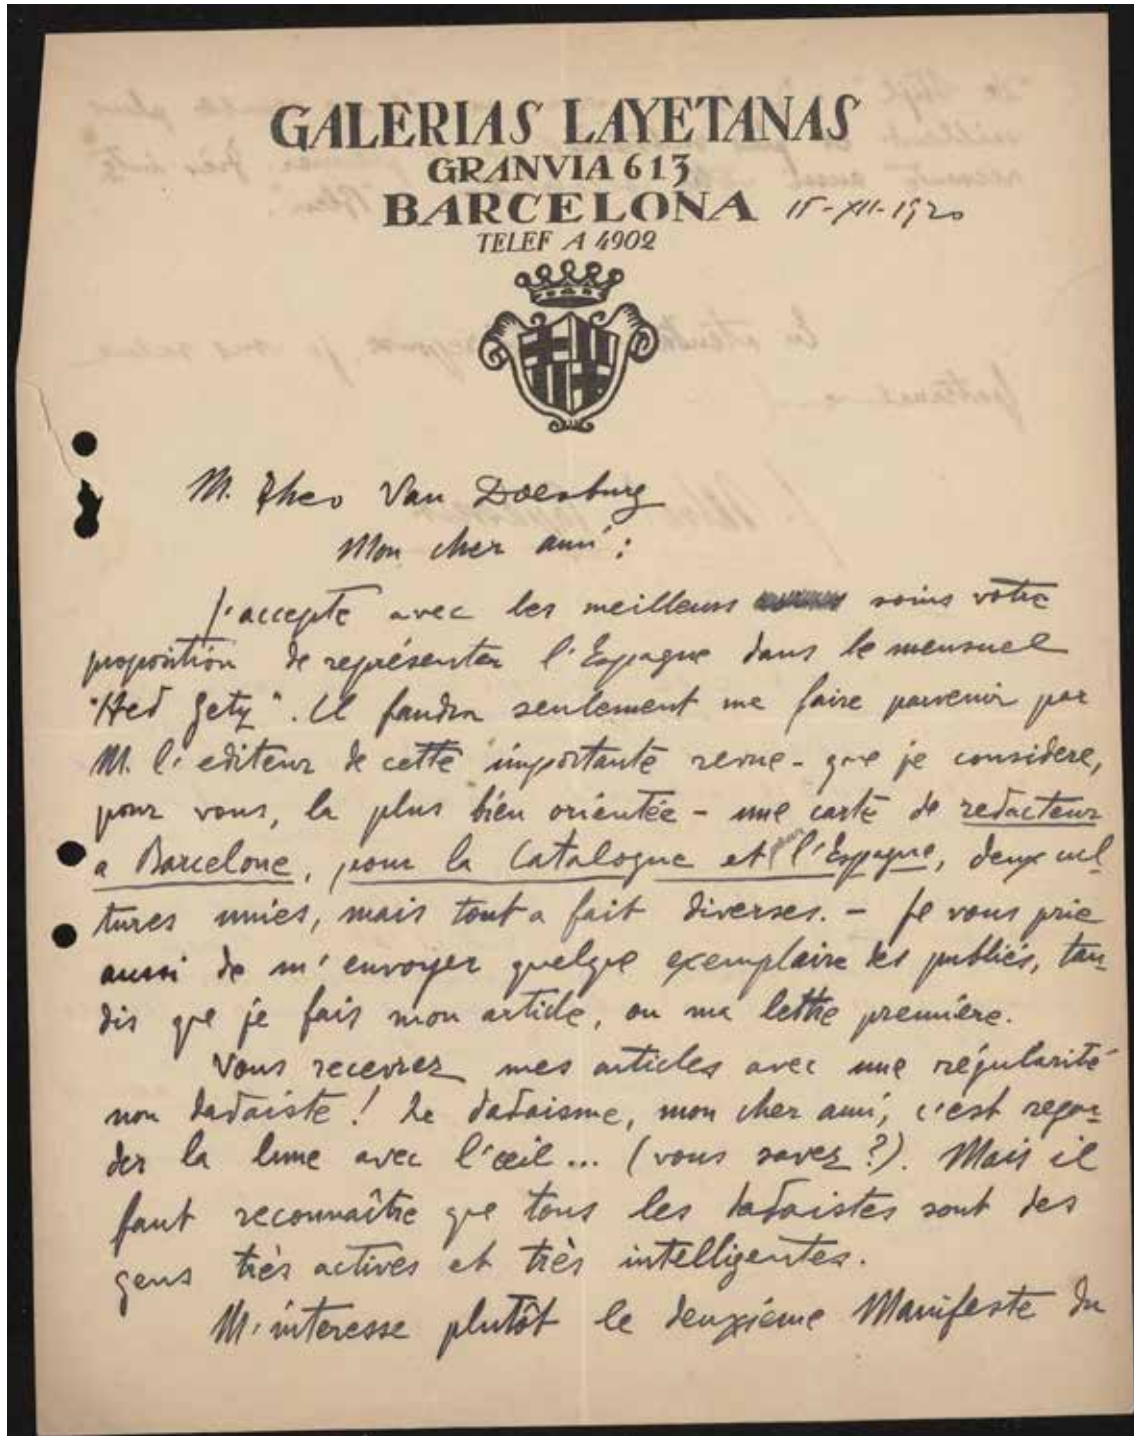 GALERIAS LAYETANAS
GRANVIA 613
BARCELONA 15-XII-1920
TELEF A 4902
M. Theo Van Doesburg
Mon cher ami :
J'accepte avec les meilleurs soins votre
proposition de représenter l'Espagne dans le mensuel
"Hed Gety". Il faudra seulement me faire parvenir par
M. l'editeur de cette importante revue - que je considere,
pour vous, la plus bien orientée - une carte de redacteur
a Barcelone, pour la Catalogne et pour l'Espagne, deux cul-
tures unies, mais tout a fait diverses. - Je vous prie
aussi de m'envoyer quelque exemplaire des publiés, tan-
dis que je fais mon article, ou ma lettre première.
Vous recevrez mes articles avec une régularité
non dadaiste ! Le dadaisme, mon cher ami, c'est regar-
der la lune avec l'œil ... (vous savez ?). Mais il
faut reconnaître que tous les dadaistes sont des
gens très actives et très intelligentes.
M'interesse plutôt le deuxième Manifeste du